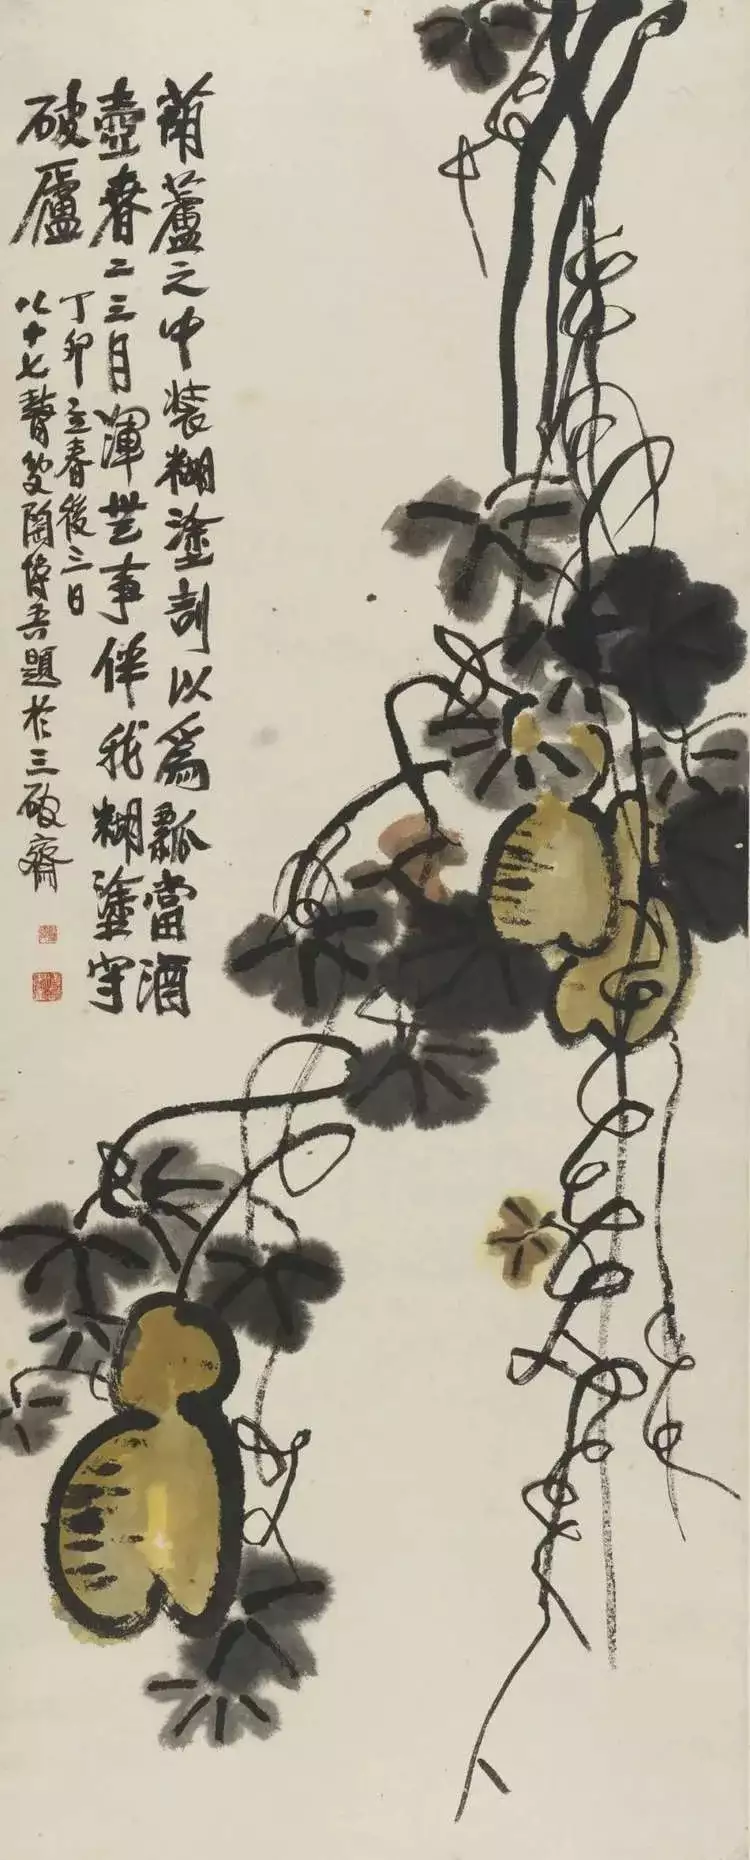 葫蘆之中裝糊塗剖以為瓢當酒
壺春二三月渾世事伴我糊塗守
破廬
丁卯立春後三日
八十七聱叟陶博吾題於三破齋